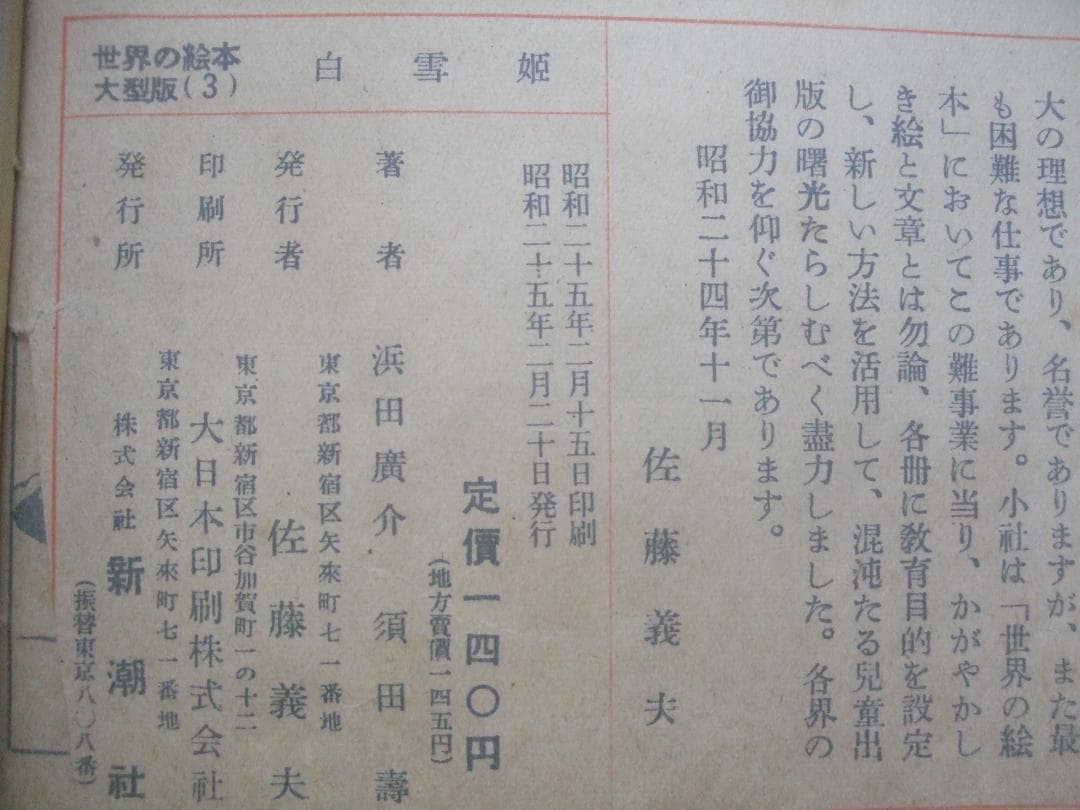 大の理想であり、名誉でありますが、また最
も困難な仕事であります。小社は「世界の絵
本」においてこの難事業に当り、かがやかし
き絵と文章とは勿論、各冊に教育目的を設定
し、新しい方法を活用して、混沌たる兒童出
版の曙光たらしむべく盡力しました。各界の
御協力を仰ぐ次第であります。
昭和二十四年十一月
佐藤義夫
世界の絵本
大型版(3)
白雪姫
昭和二十五年二月十五日印刷
昭和二十五年二月二十日発行
定價一四〇円
(地方賣價一四五円)
著者 浜田廣介 須田壽
東京都新宿区矢來町七一番地
発行者 佐藤義夫
東京都新宿区市谷加賀町一の十二
印刷所 大日本印刷株式会社
東京都新宿区矢來町七一番地
発行所 株式会社 新潮社
(振替東京八〇八番)